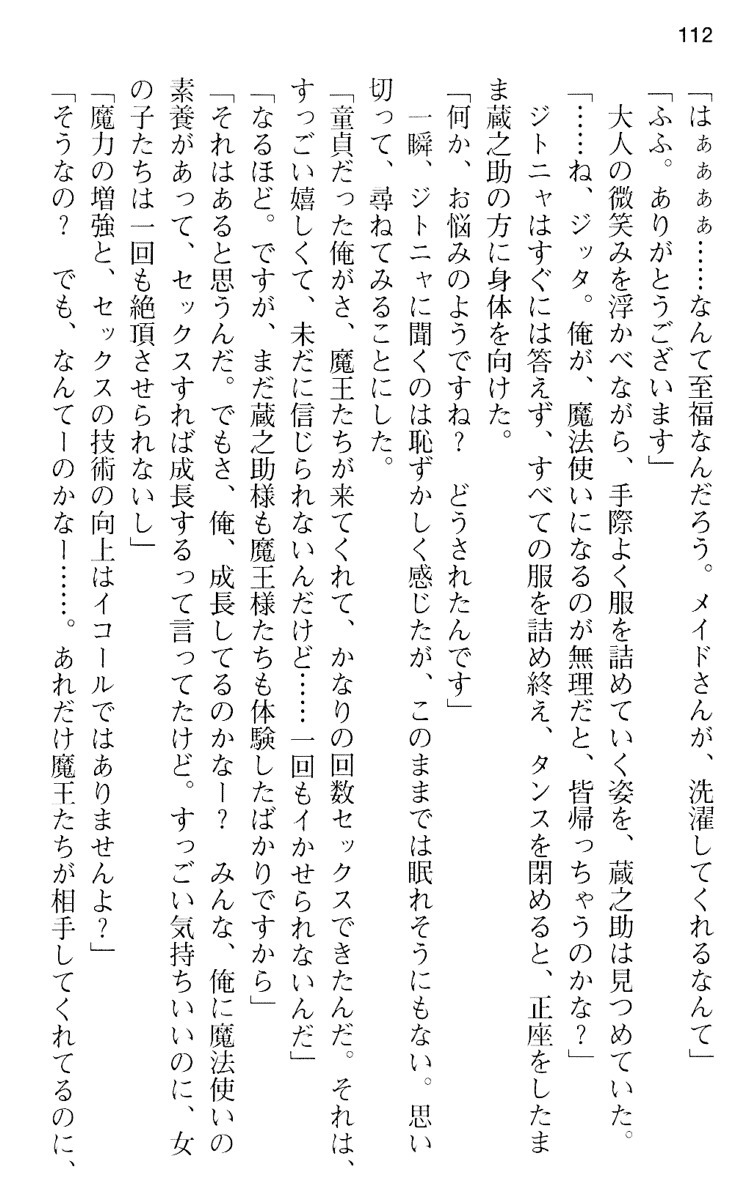 112
「はぁぁぁぁ……なんて至福なんだろう。メイドさんが、洗濯してくれるなんて」
「ふふ。ありがとうございます」
　大人の微笑みを浮かべながら、手際よく服を詰めていく姿を、蔵之助は見つめていた。
「……ね、ジッタ。俺が、魔法使いになるのが無理だと、皆帰っちゃうのかな？」
　ジトニャはすぐには答えず、すべての服を詰め終え、タンスを閉めると、正座をしたま
ま蔵之助の方に身体を向けた。
「何か、お悩みのようですね？　どうされたんです」
　一瞬、ジトニャに聞くのは恥ずかしく感じたが、このままでは眠れそうにもない。思い
切って、尋ねてみることにした。
「童貞だった俺がさ、魔王たちが来てくれて、かなりの回数セックスできたんだ。それは、
すっごい嬉しくて、未だに信じられないんだけど……一回もイかせられないんだ」
「なるほど。ですが、まだ蔵之助様も魔王様たちも体験したばかりですから」
「それはあると思うんだ。でもさ、俺、成長してるのかなー？　みんな、俺に魔法使いの
素養があって、セックスすれば成長するって言ってたけど。すっごい気持ちいいのに、女
の子たちは一回も絶頂させられないし」
「魔力の増強と、セックスの技術の向上はイコールではありませんよ？」
「そうなの？　でも、なんてーのかなー……。あれだけ魔王たちが相手してくれてるのに、